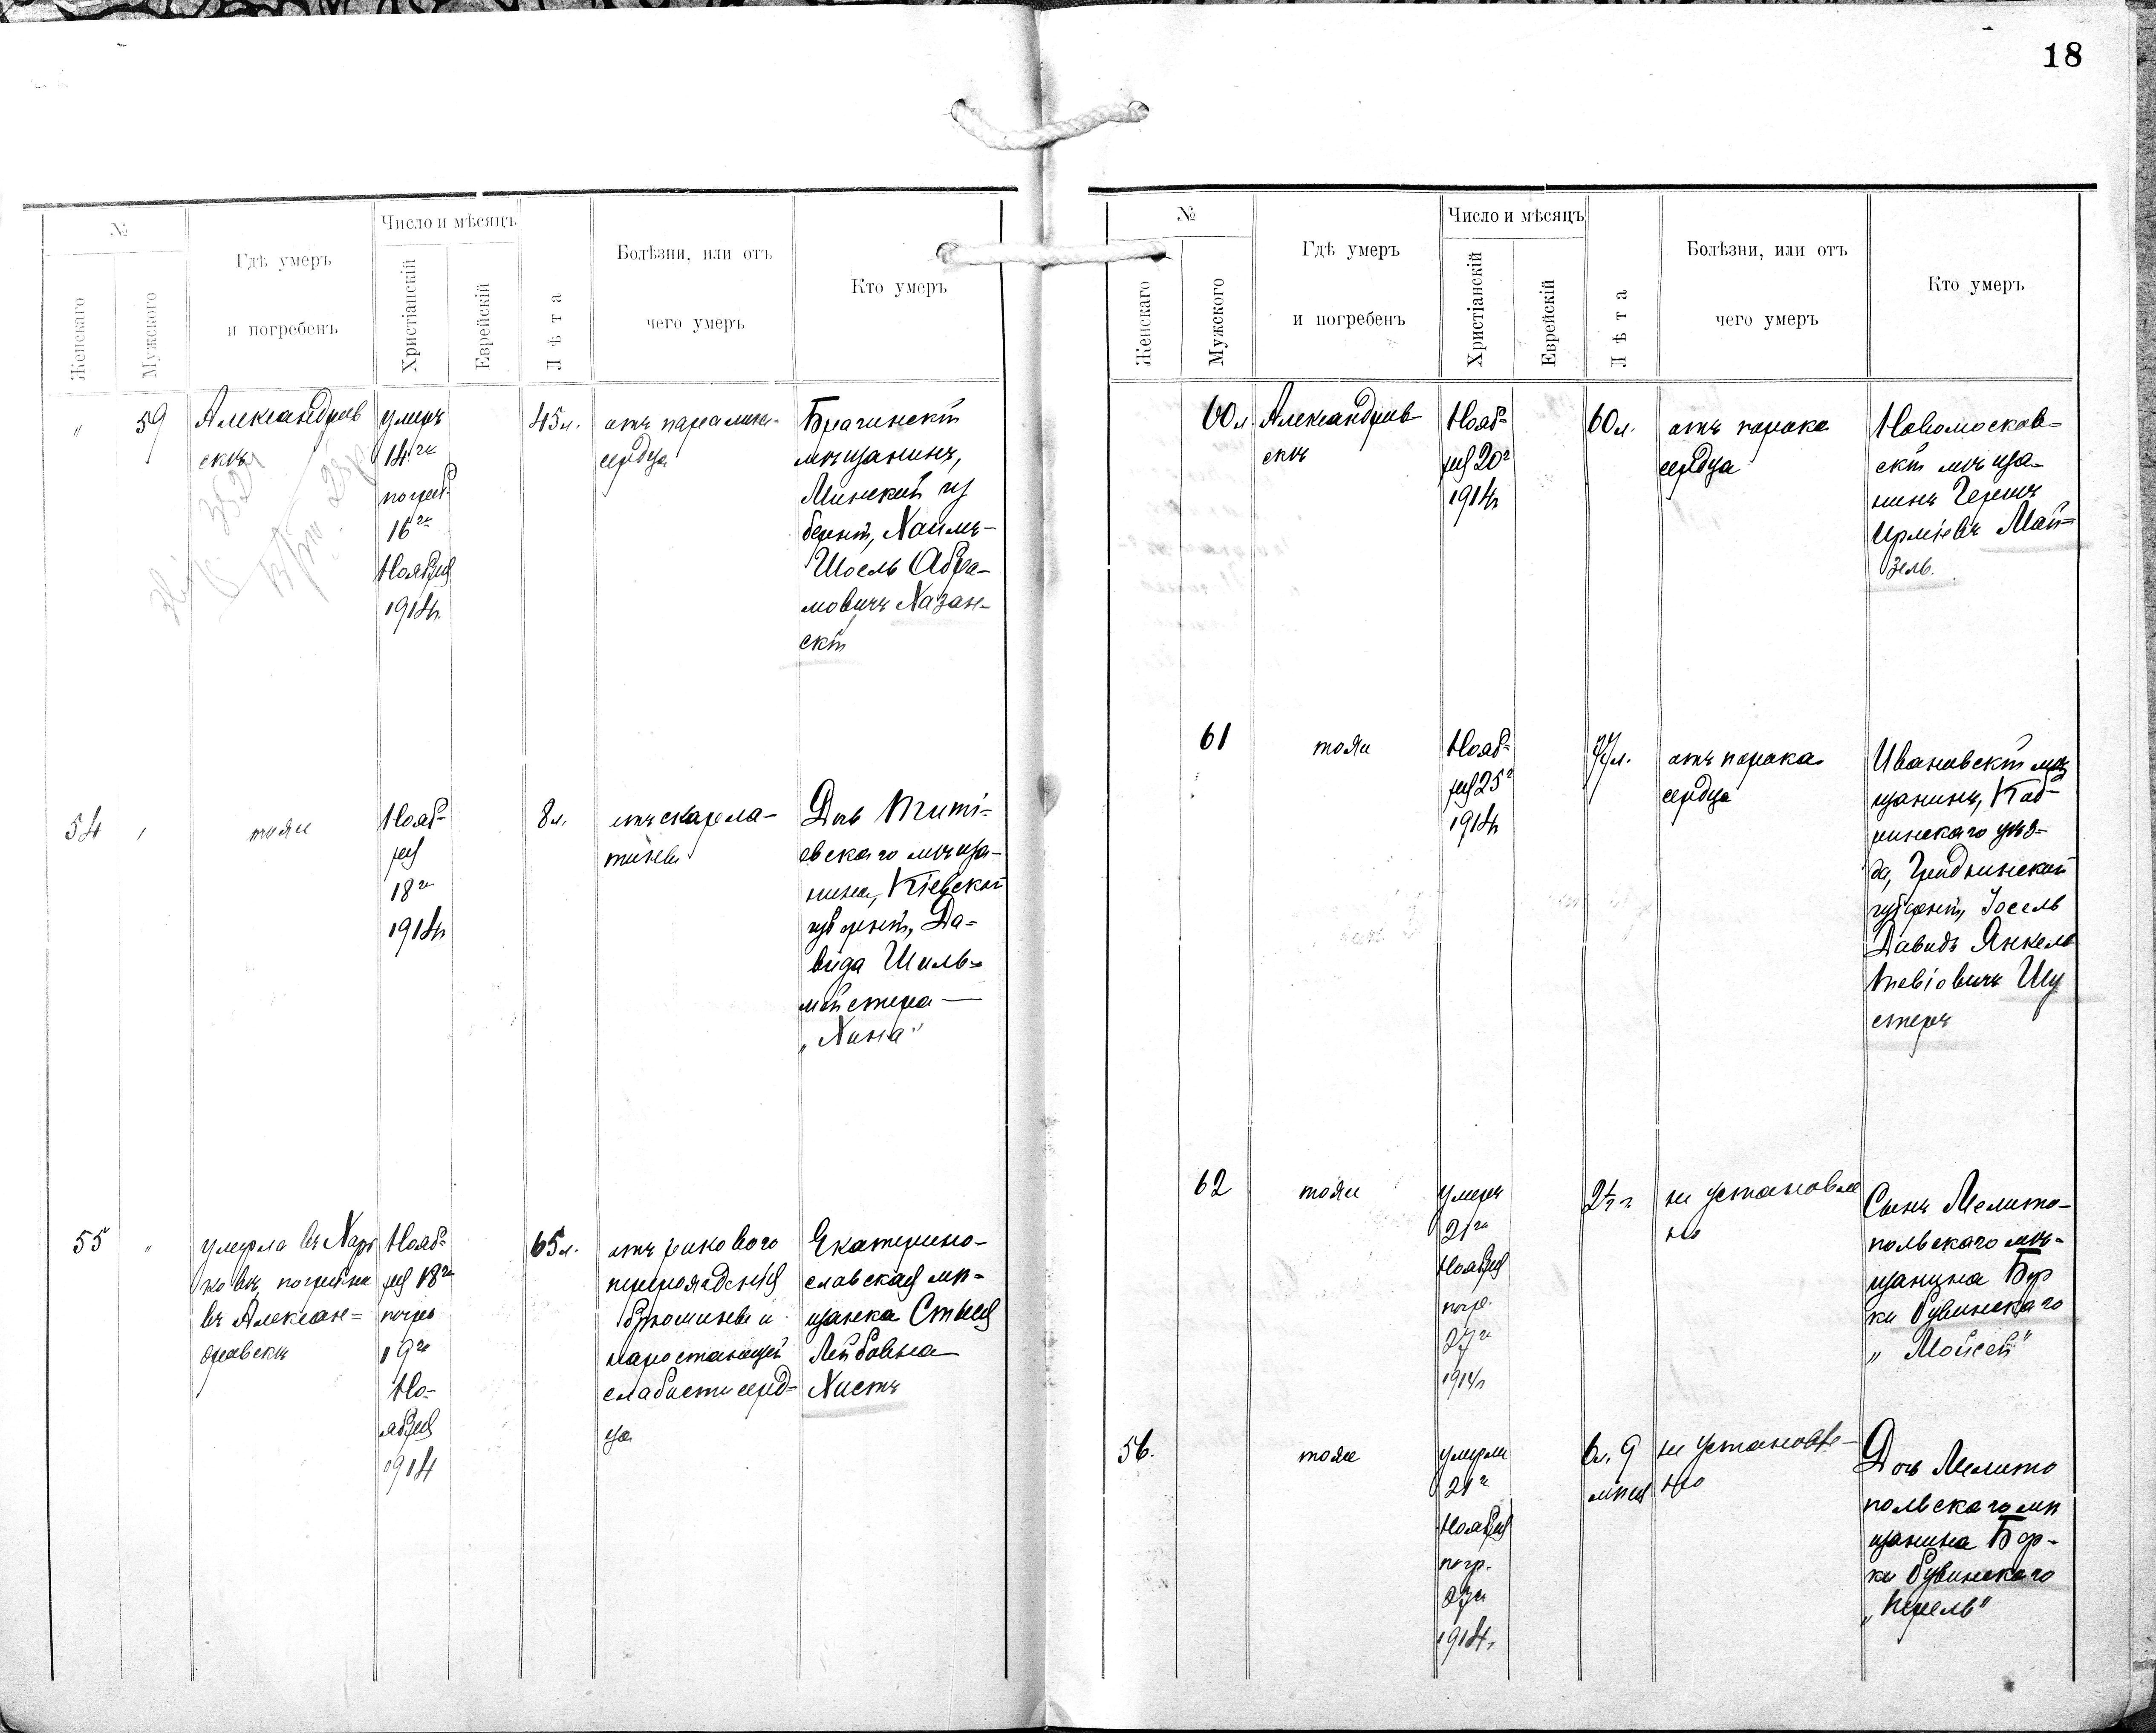 18
№
Женскаго
Мужского
Гдѣ умеръ
и погребенъ
Число и мѣсяцъ
Христіанскій
Еврейскій
Лѣта
Болѣзни, или отъ
чего умеръ
Кто умеръ
"
59
Александров
скѣ
умеръ
14го
погреб.
16го
Ноября
1914г.
45л.
отъ паралича
сердца
Брагинскій
мѣщанинъ,
Минской гу
берніи, Хаимъ-
Шоель Абра-
мовичъ Хазан-
скій
54
тоже
Нояб-
ря
18го
1914г
8л.
отъ скарла-
тины
Дочь
евскаго мѣща-
нина, Кіевской
губерніи, Да-
вида Шиль-
мейстера —
„Хана"
55
"
умерла въ Харь
ковѣ, погребена
въ Алексан=
дровскѣ
Нояб=
ря 18го
погреб
19го
Но-
ября
1914
65л.
отъ ракового
перерожденія
брюшины и
наростающей
слабости серд-
ца
Екатерино-
славская мѣ-
щанка Стыся
Лейбовна
Хистъ
№
Женскаго
Мужского
Гдѣ умеръ
и погребенъ
Число и мѣсяцъ
Христіанскій
Еврейскій
Лѣта
Болѣзни, или отъ
чего умеръ
Кто умеръ
60
Александров-
скѣ
Нояб-
ря 20г
1914г
60л.
отъ порока
сердца
Новомосков-
скій мѣща-
нинъ Гершъ
Май=
зель.
61
тоже
Нояб-
ря 25г
1914г
77л.
отъ порока
сердца
Ивановскій мѣ
щанинъ, Коб-
ринскаго уѣз-
да, Гродненской
губерніи, Іосель
Давидъ Янкель
Тевіовичъ Шу
стеръ
62
тоже
умеръ
21го
Ноября
погр.
27го
1914г
2½ г
не установле
но
Сынъ Мелито-
польскаго мѣ-
щанина Бер
ки
„Мойсей"
56.
тоже
умерла
21г
Ноября
погр.
27го
1914г.
6л. 9
мѣся
не установле-
но
Дочь Мелито
польскаго мѣ
щанина Бер-
ки
„Перель"